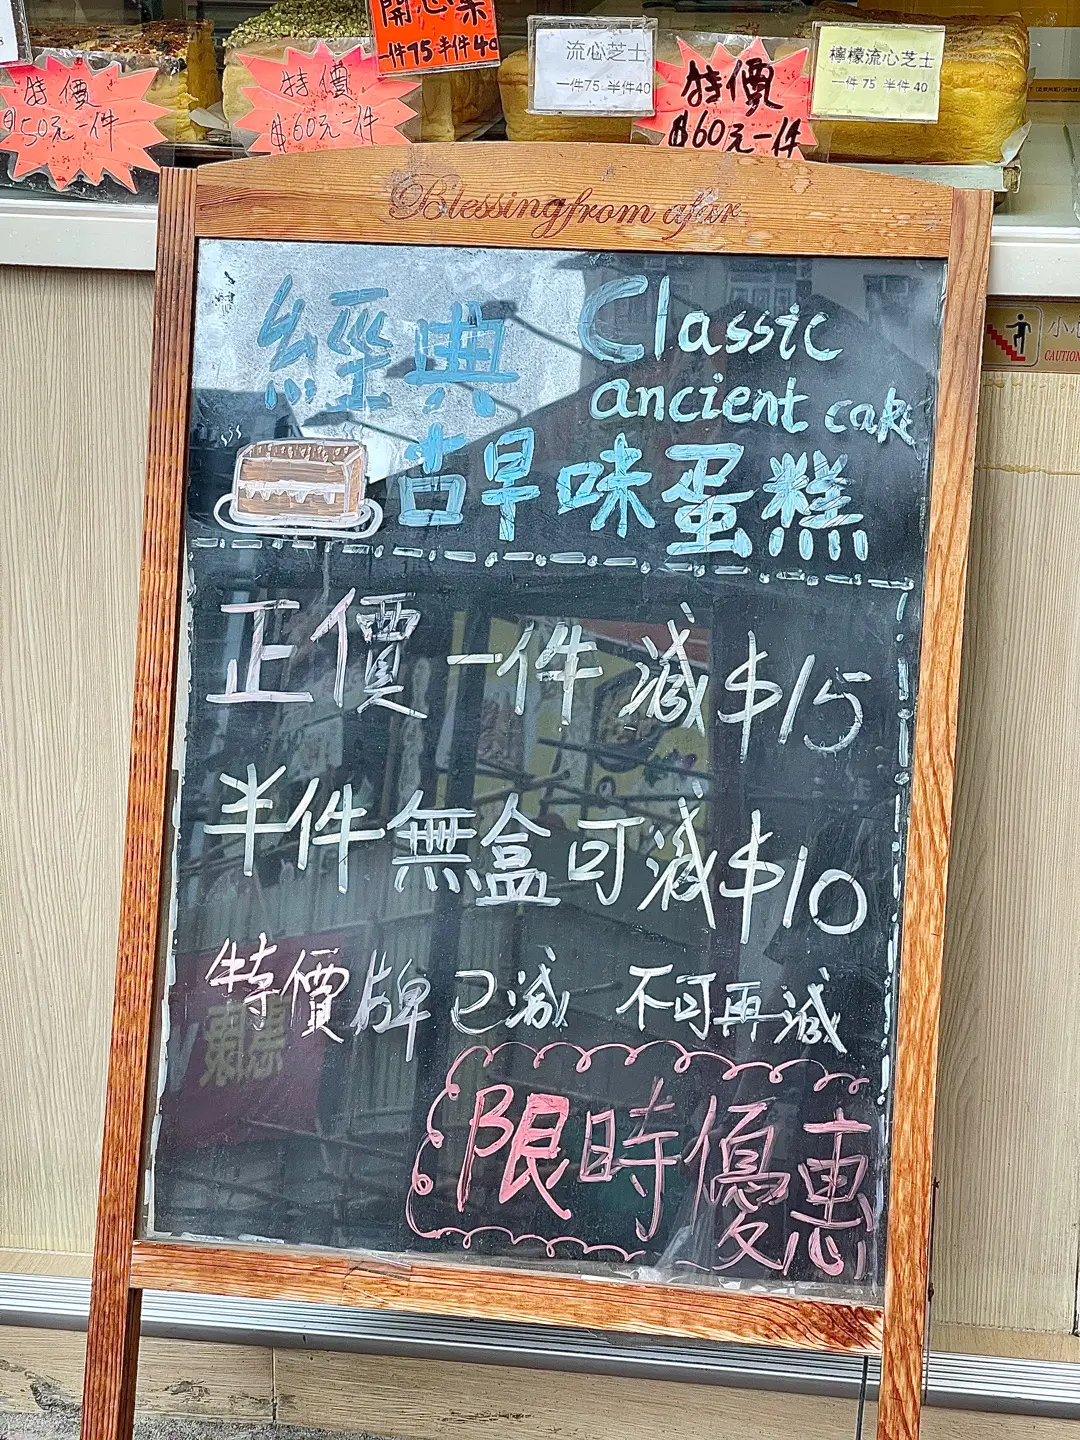 開心果
一件75 半件40
流心芝士
一件75 半件40
檸檬流心芝士
一件75 半件40
特價
$50元一件
特價
$60元一件
特價
$60元一件
Blessing from afar
經典
Classic
ancient cake
古早味蛋糕
正價一件減$15
半件無盒可減$10
特價牌已減 不可再減
限時優惠
小心
CAUTION